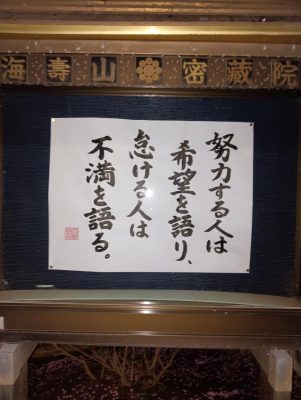 海壽山密藏院
努力する人は
希望を語り、
怠ける人は
不満を語る。